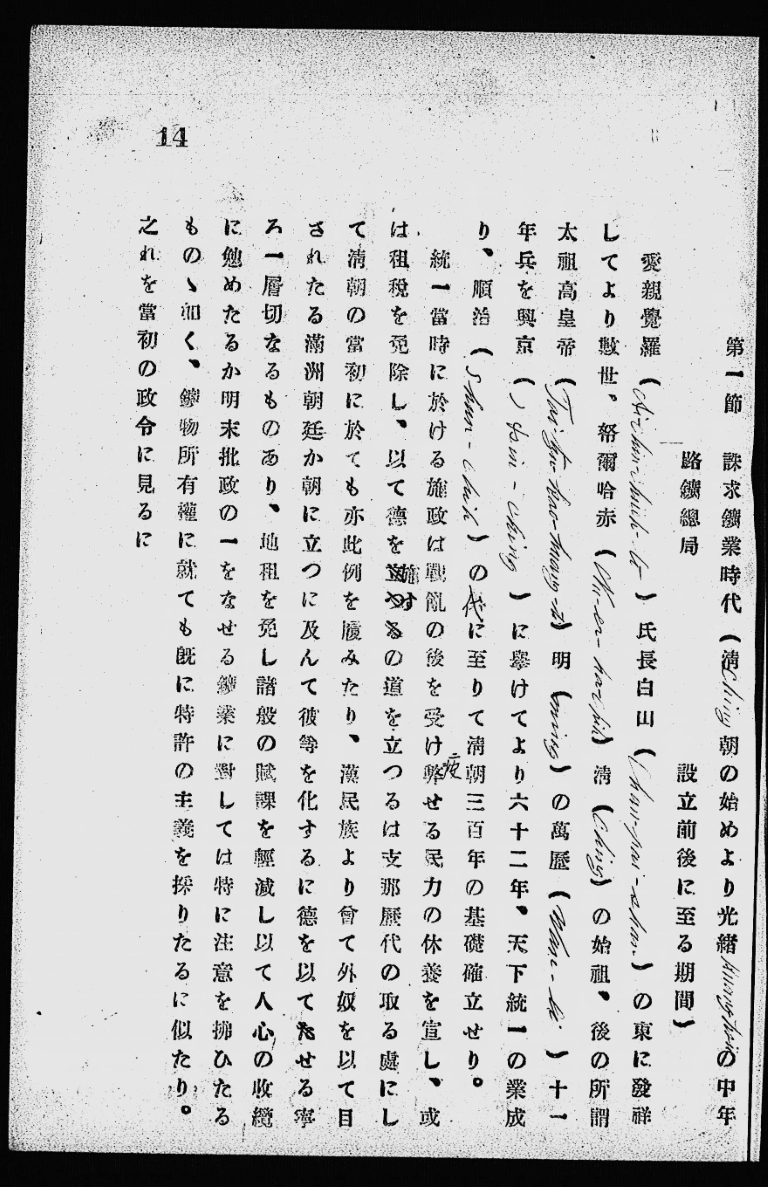 14
第一節　誅求鑛業時代（淸 Ching 朝の始めより光緖の中年
路鑛總局　設立前後に至る期間）
愛親覺羅（　）氏長白山（Chan-pai-shan）の東に發祥
してより數世。弩爾哈赤（　）淸（Ching）の始祖、後の所謂
太祖高皇帝（）明（ming）の萬歷（Wan-li）十一
年兵を興京（-ching）に擧けてより六十二年、天下統一の業成
り、順治（Shun-chih）の代に至りて淸朝三百年の基礎確立せり。
統一當時に於ける施政は戰亂の後を受け疲弊せる民力の休養を宣し、或
は租稅を免除し、以て德を施すの道を立つるは支那歷代の取る處にし
て淸朝の當初に於ても亦此例を履みたり、漢民族より曾て外奴を以て目
されたる滿洲朝廷か朝に立つに及んて彼等を化するに德を以てたせる寧
ろ一層切なるものあり、地租を免し諸般の賦課を輕減し以て人心の收纜
に勉めたるか明末批政の一をなせる鑛業に對しては特に注意を拂ひたる
ものゝ如く、鑛物所有權に就ても既に特許の主義を採りたるに似たり。
之れを當初の政令に見るに